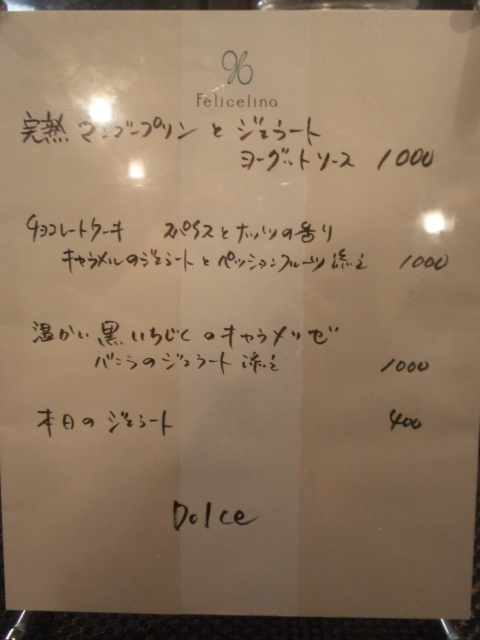 Felicelina
完熟マンゴープリンとジェラート
ヨーグルトソース 1000
チョコレートケーキ スパイスとナッツの香り
キャラメルのジェラートとパッションフルーツ添え 1000
温かい黒いちじくのキャラメリゼ
バニラのジェラート添え 1000
本日のジェラート 400
Dolce